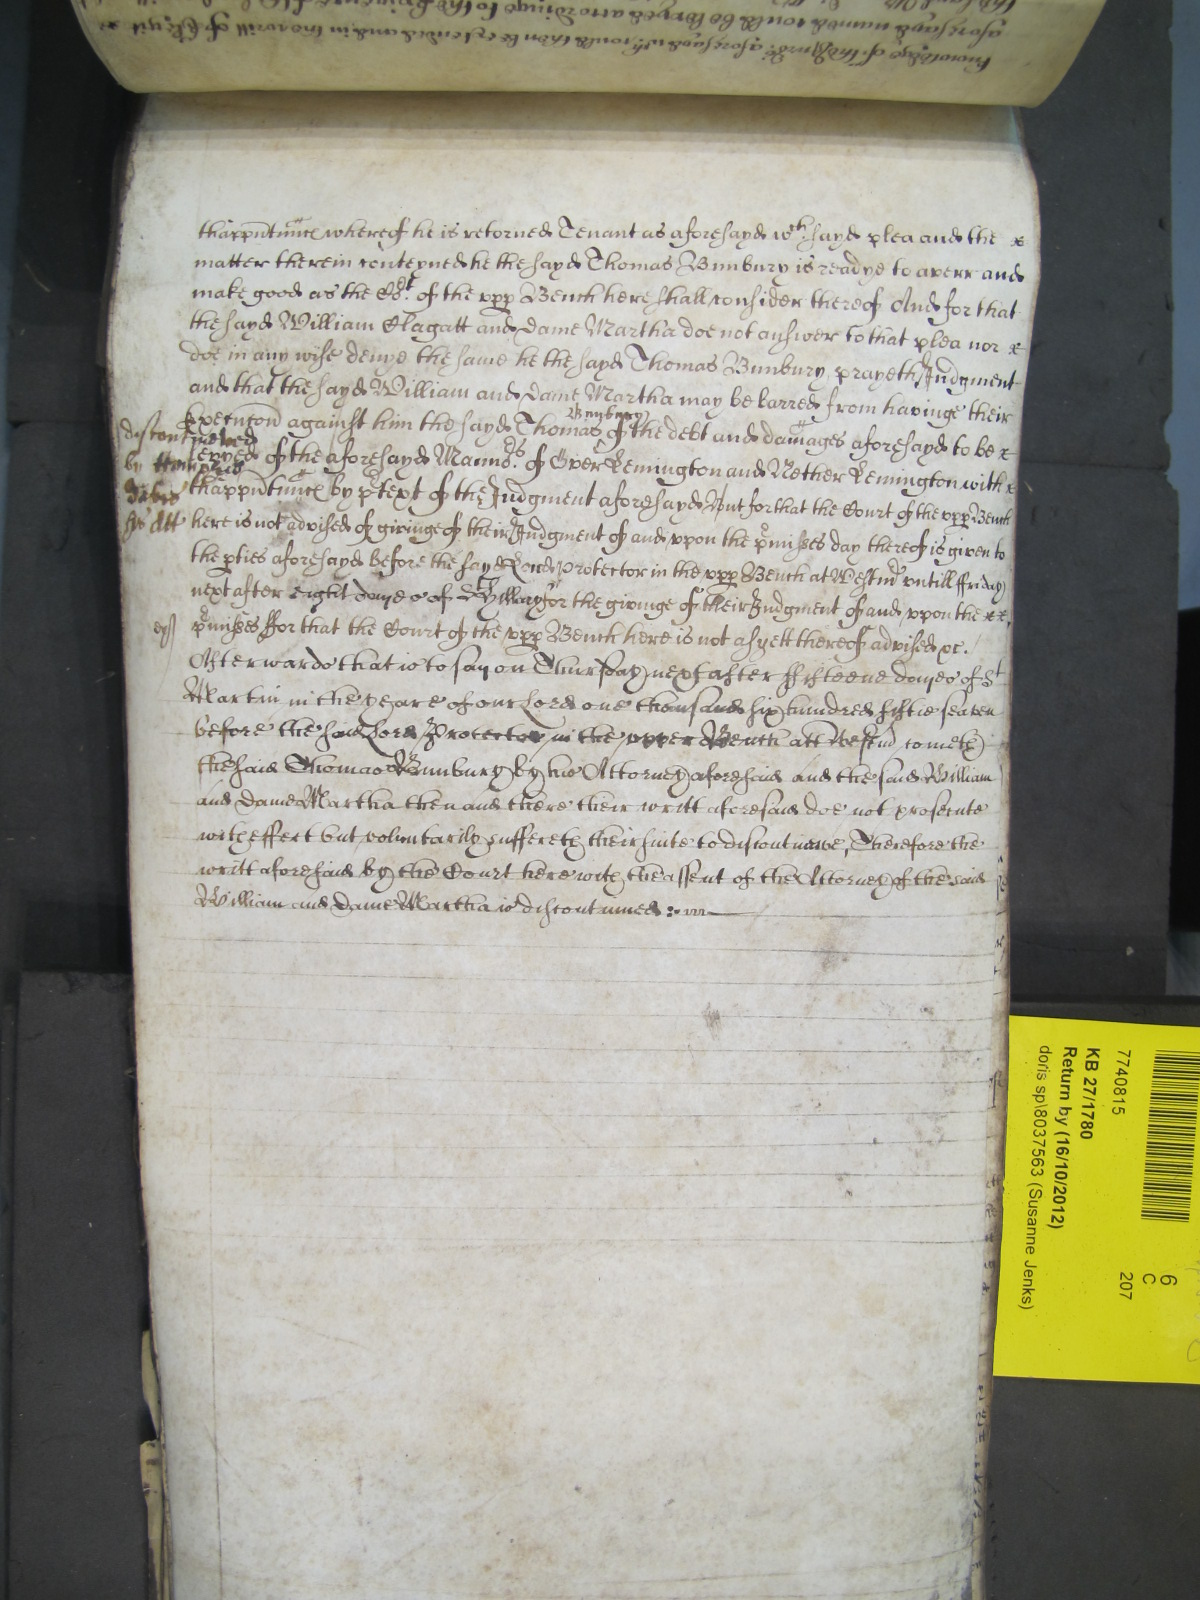 thapp'ten'nces whereof he is retorned Tenant as aforesayd wch sayd plea and the x
matter therein conteyned he the sayd Thomas Bunbury is readye to averr and
make good as the Cort of the upp Bench here shall consider thereof And for that
the sayd William Clagatt and Dame Martha doe not answer to that plea nor x
doe in any wise denye the same he the sayd Thomas Bunbury prayeth Judgment
and that the sayd William and Dame Martha may be barred from havinge their
Execucon against him the sayd Thomas Bunbury of the debt and damages aforesayd to be x
levyed of the aforesayd Mannors of Over Kemington and Nether Kemington with x
thapp'ten'nces by p'text of the Judgment aforesayd But for that the Court of the upp Bench
here is not advised of givinge of their Judgment of and upon the p'misses day thereof is given to
the pties aforesayd before the sayd Lord Protector in the upp Bench at Westmr untill ffriday
next after eight dayes of St Hillary for the givinge of their Judgment of and upon the xx
p'misses ffor that the Court of the upp Bench here is not as yett thereof advised &c.
Afterwards that is to say on Thursday next after fifteene dayes of St
Martin in the yeare of our Lord one thousand six hundred fiftie seaven
before the said Lord Protector in the upper Bench att Westmr cometh
the said Thomas Bunbury by his Attorney aforesaid and the said William
and Dame Martha then and there their writt aforesaid doe not prosecute
with effect but voluntarily suffereth their suite to discontinue, Therefore the
writt aforesaid by the Court here with the assent of the Attorney of the said
William and Dame Martha is discontinued
discontinued
by
his Att
7740815
KB 27/1780
Return by (16/10/2012)
doris sp\8037563 (Susanne Jenks)
6
C
207